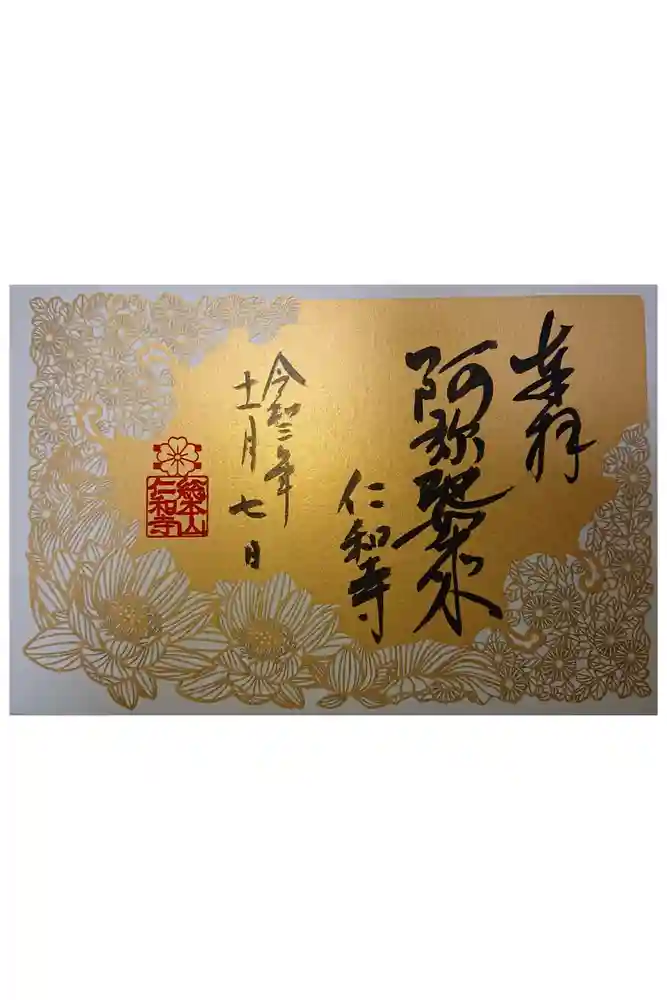 奉拝
阿弥
仁和寺
令和二年
十一月七日
総本山
仁和寺